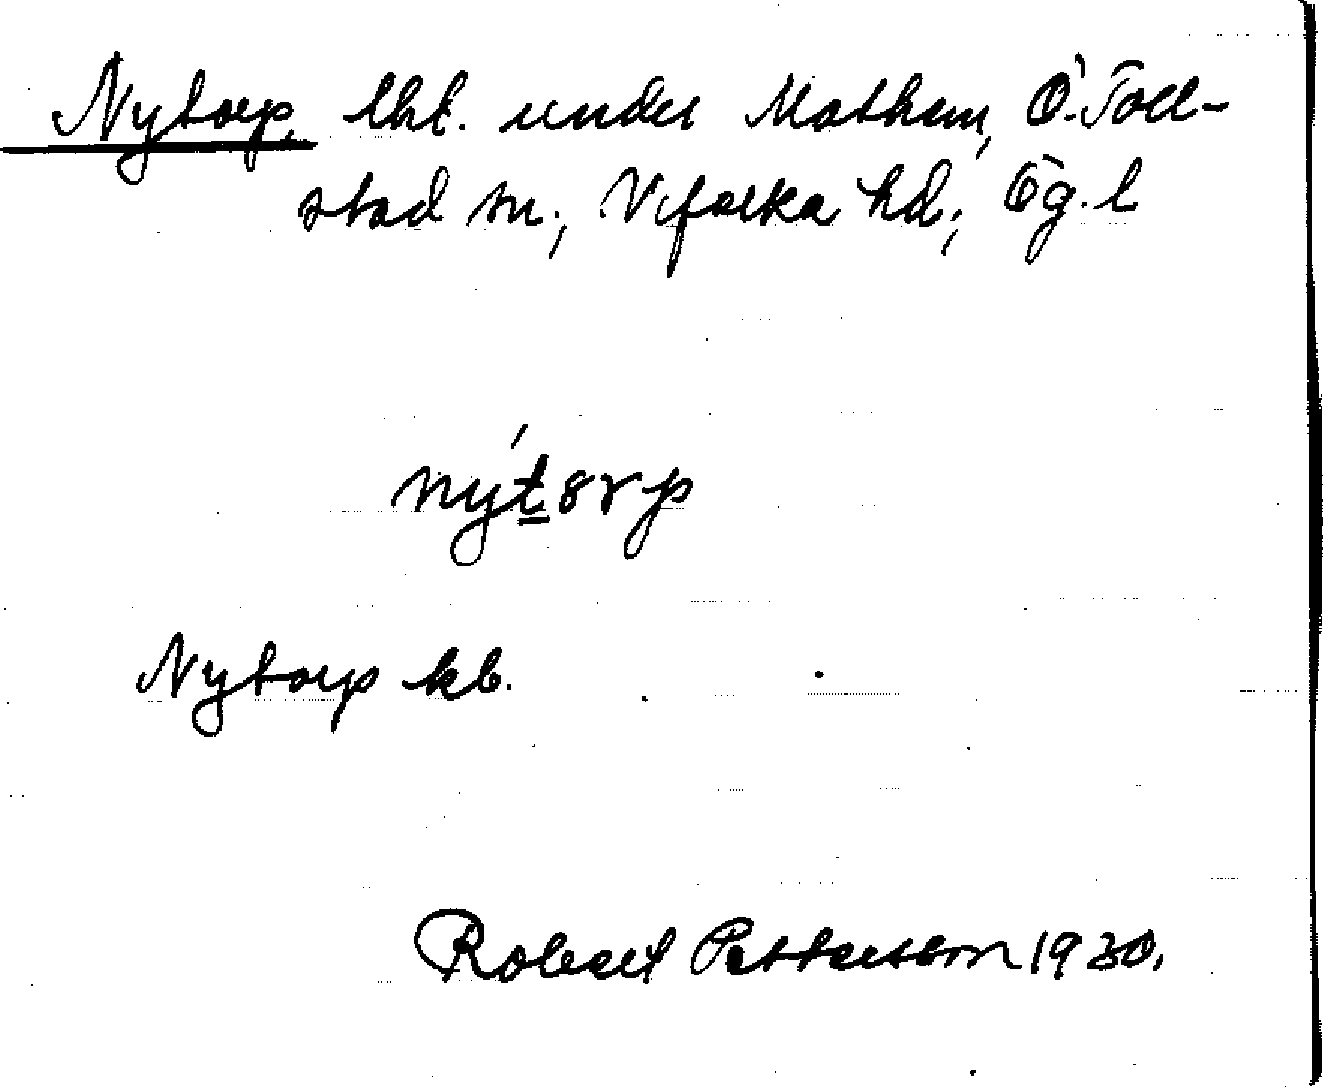 Nytorp, lht. under Mathem, Ö. Toll-
stad sn., Vifolka hd., Ög. l
nýt̲ors̲p
Nytorp kb.
Robert Pettersson 1930.